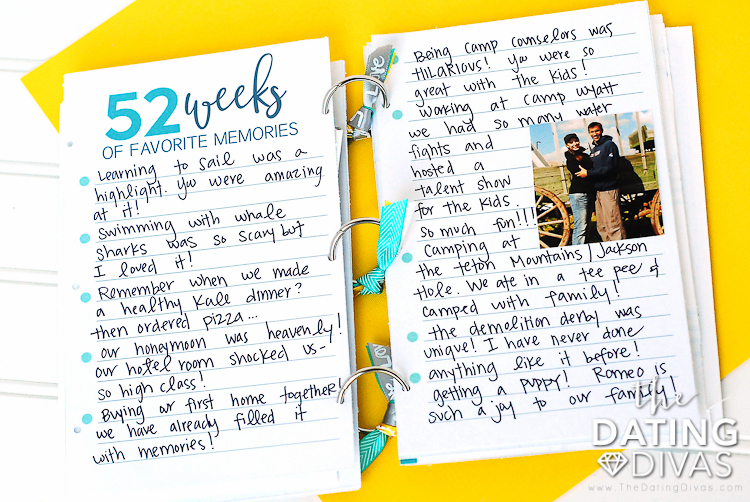 52 weeks
OF FAVORITE MEMORIES
Learning to sail was a
highlight. You were amazing
at it!
Swimming with whale
sharks was so scary but
I loved it!
Remember when we made
a healthy Kale dinner?
then ordered pizza...
our honeymoon was heavenly!
our hotel room shocked us-
so high class!
Buying our first home together
we have already filled it
with memories!
Being camp counselors was
HILARIOUS! You were so
great with the kids!
working at camp Wyatt
we had so many water
fights and
hosted a
talent show
for the kids.
so much fun!!!
Camping at
the Teton Mountains/Jackson
Hole. We ate in a tee pee &
camped with family!
the demolition derby was
unique! I have never done
anything like it before!
getting a puppy! Romeo is
such a joy to our family!
the
DATING
DIVAS
www.TheDatingDivas.com